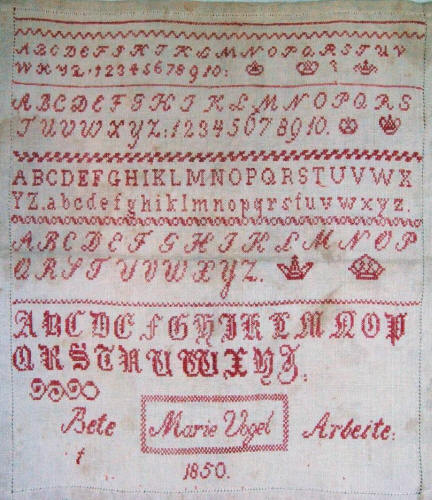 ABCDEFGHIKLMNOPQRSTUV
WXYZ.1234567890:
ABCDEFGHIKLMNOPQRS
TUVWXYZ:1234567890.
ABCDEFGHIKLMNOPQRSTUVWX
YZ.abcdefghiklmnopqrstuvwxyz.
ABCDEFGHIKLMNOP
QRSTUVWXYZ.
ABCDEFGHIKLMNOP
QRSTUVWXYZ.
Bete Marie Vogel Arbeite:
†
1850.